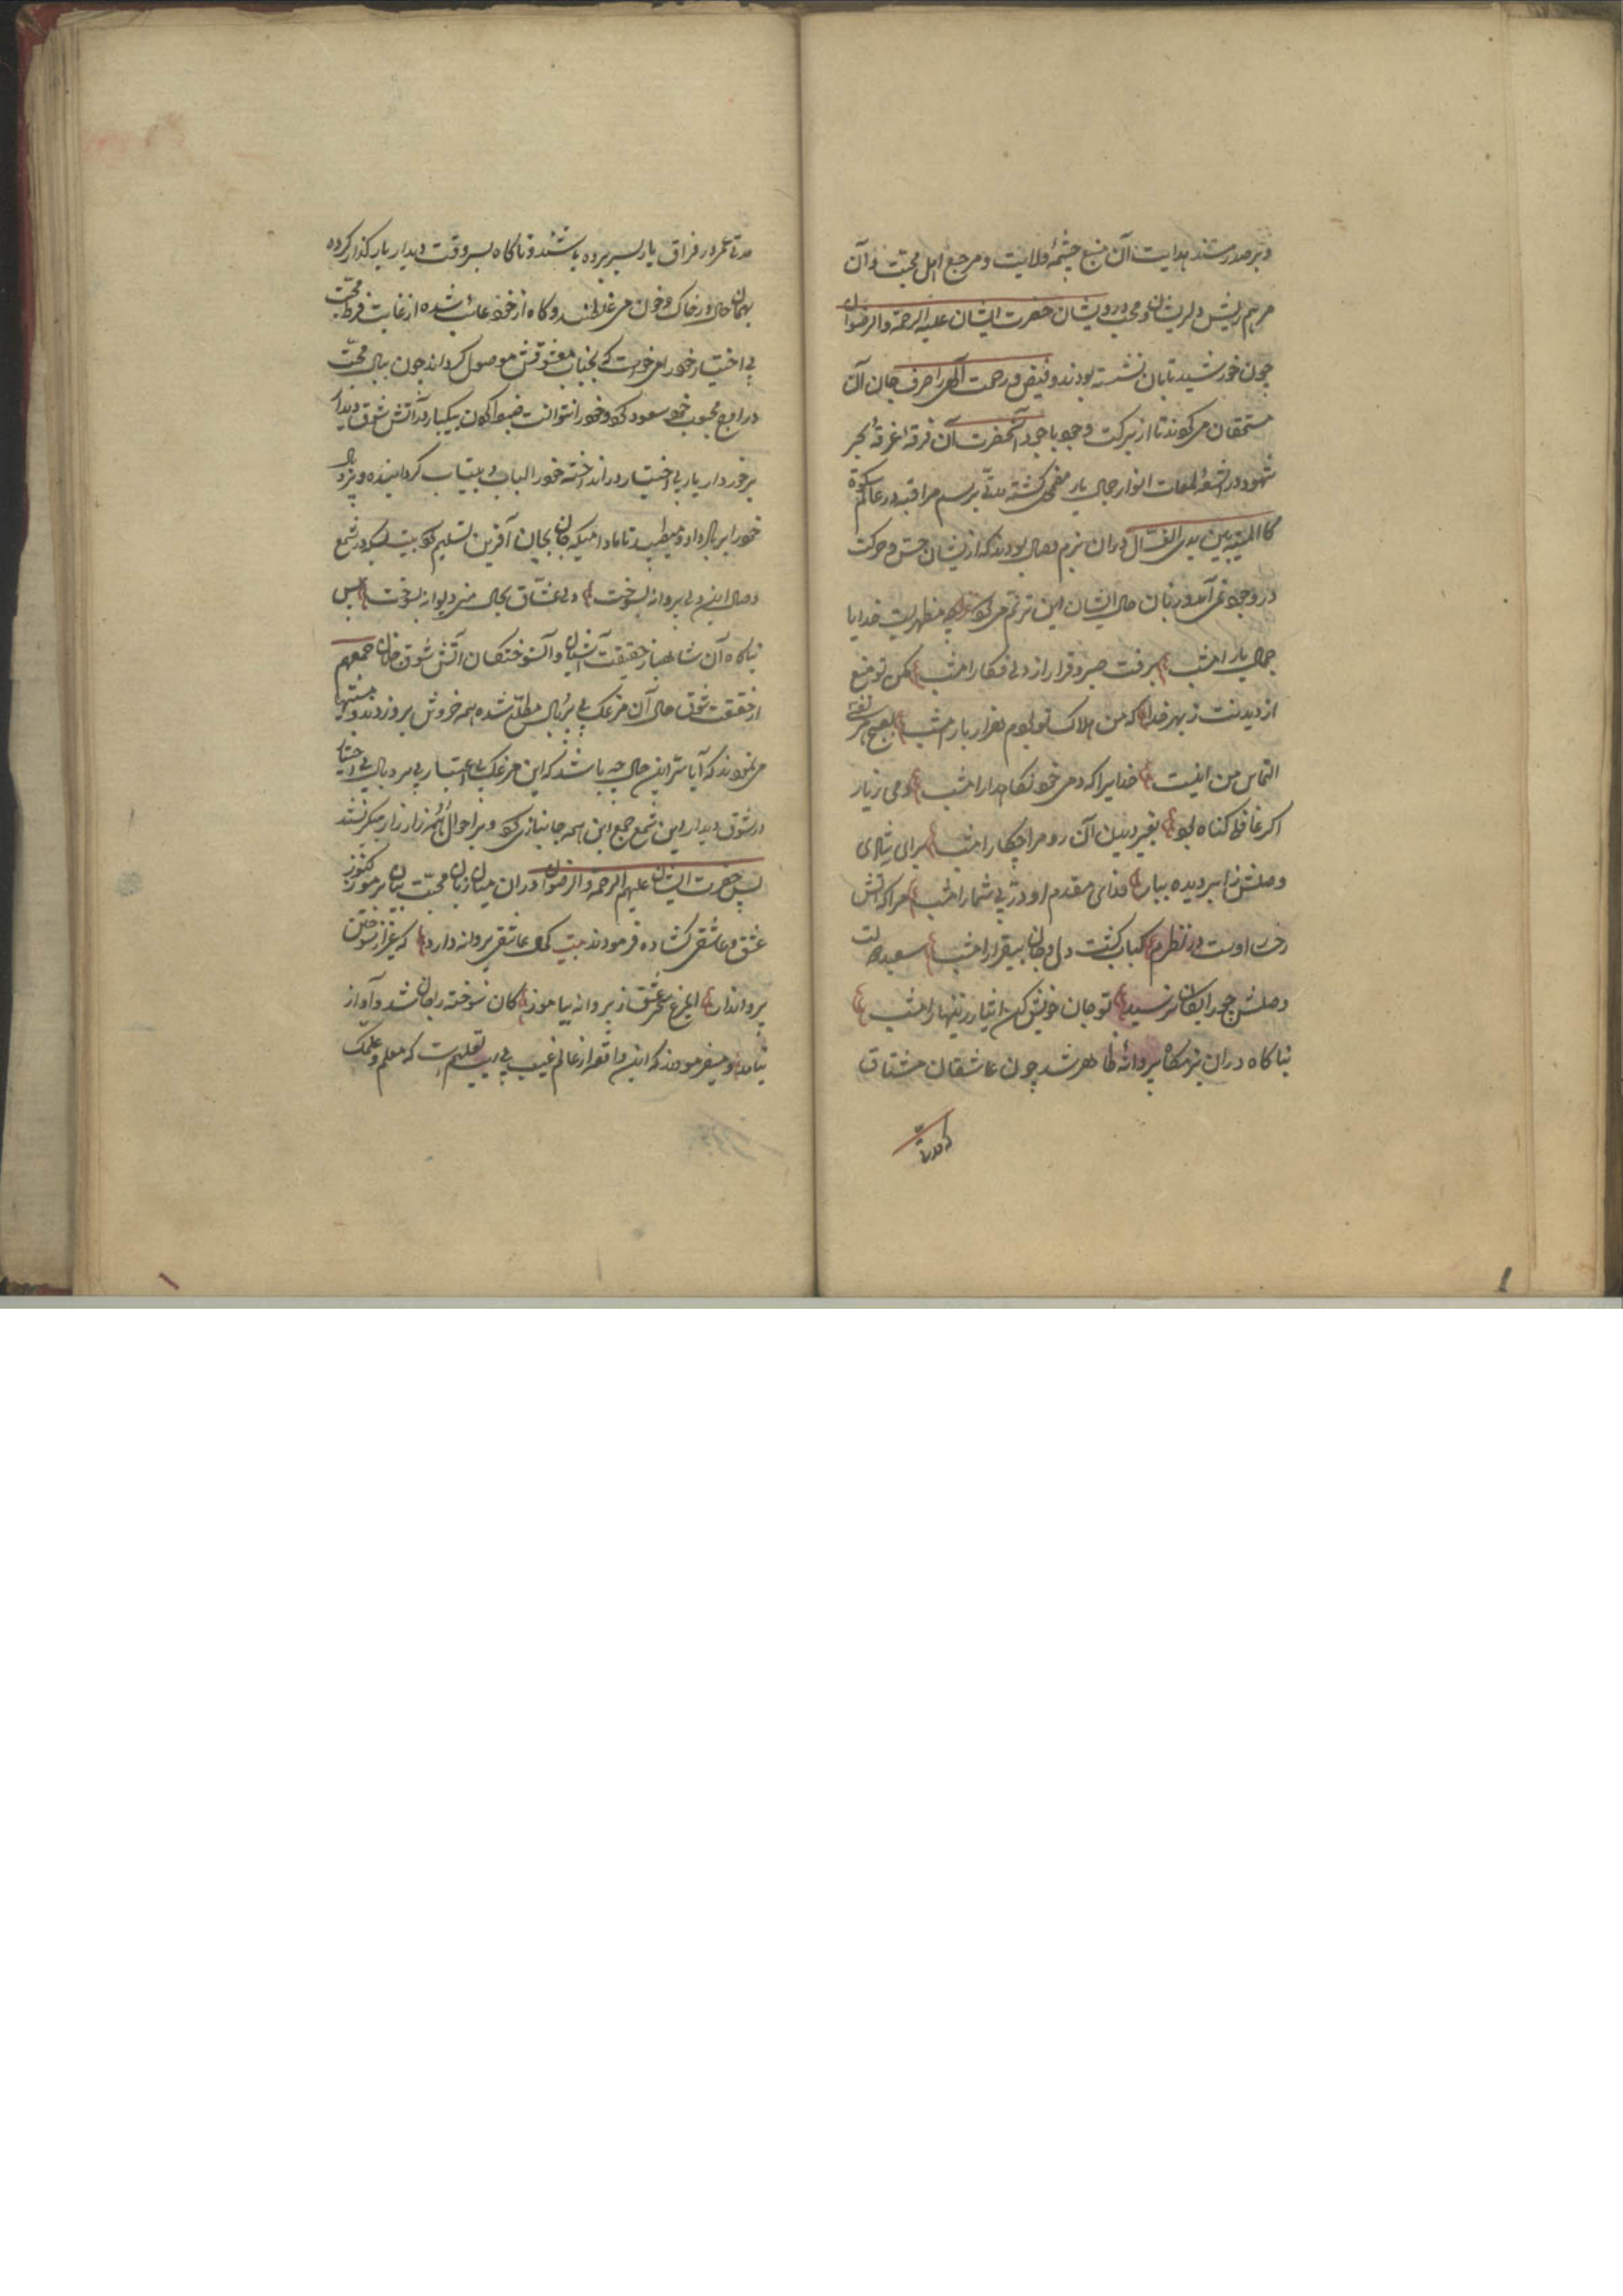 و بر صدر مسند هدایت آن منبع چشمهٔ ولایت و مرجع اهل محبت و آن
مرهم ریش دلریشان و محب درویشان حضرت ایشان علیه الرحمة والرضوان
چون خورشید تابان نشسته بودند و فیض و رحمت آلهی را صرف جان آن
مستحقان می کردند تا از برکت وجود باجود آنحضرت آن فرقهٔ غرقهٔ بحر
شهود در اشعهٔ لمعات انوار جمال یار کشته مدتی برسم مراقبه در عالم سکوت
کالمیت بین یدی الغسال دران بزم وصال بودند که از یشان حس و حرکت
در وجود نمی آمد و زبان حال ایشان این ترنم می کرد خدایا
جمال یار امشب برفت صبر و قرار از دل فکار امشب مکن تو منع
از دیدنت ز بهر خدا که من هلاک تو بودم هزار بار امشب
التماس من اینست خدایرا که دمی خود نکاه دار امشب دمی ز یار
اکر غافل کناه بود بغیر دیدن آن رو مرا چکار امشب برای شادی
وصلش ز ابر دیده ببار فدای مقدم او در بی شمار امشب مرا که آتش
رخ اوست در نظرم کباب کشت دل و جان بیقرار امشب سعید دولت
وصلش چو رایکان نرسید تو جان خویش کن ایثار زینهار امشب
بناکاه دران بزمکاه پروانهٔ ظاهر شد چون عاشقان مشتاق
که مدتی
مدتی عمر در فراق یار بسر برده باشند و ناکاه بسر وقت دیدار یار کذار کرده
بهمان حال در خاک و خون می غلطیند و کاه از خود غائب شده از غایت فرط محبت
بی اختیار خود را می خواست که بجناب معشوقش موصول کرداند چون ببال محبت
در اوج محبوب خود صعود کرد و خود را نتوانست ضبط کردن بیکبار در آتش شوق دیدار
برخوردار یار بی اختیار در انداخته خود را بی تاب کردانیده و پر و بال
خود را بر باد داده میطپید تا مادامیکه جان بجان آفرین تسلیم کرد بیت در شمع
وصال این دل پروانه بسوخت دل عشاق بحال من دیوانه بسوخت پس
بناکاه آن شاهباز حقیقت آشیان و آن سوختکان آتش شوق جانان جمعهم
از حقیقت شوق حال آن مرغک بی پر و بال مطلع شده همه خروش بر زدند و
می نمودند که آیا سر این حال چه باشد که این مرغک بی اعتبار بی پر و بال بی اختیار
در شوق دیدار این شمع جمع این همه جانبازی کرد و بر احوال هم زار زار میکریستند
پس حضرت ایشان علیهم الرحمة والرضوان دران میان زبان محبت بیان برموز کنوز
عشق و عاشقی کشاده فرمودند بیت کمال عاشقی پروانه دارد که غیر از سوختن
پروا ندارد ای مرغ سحر عشق ز پروانه بیاموز کان سوخته را جان شد و آواز
نیامد و میفرمودند که این واقعه از عالم غیب تعلیم است که معلم و علمک